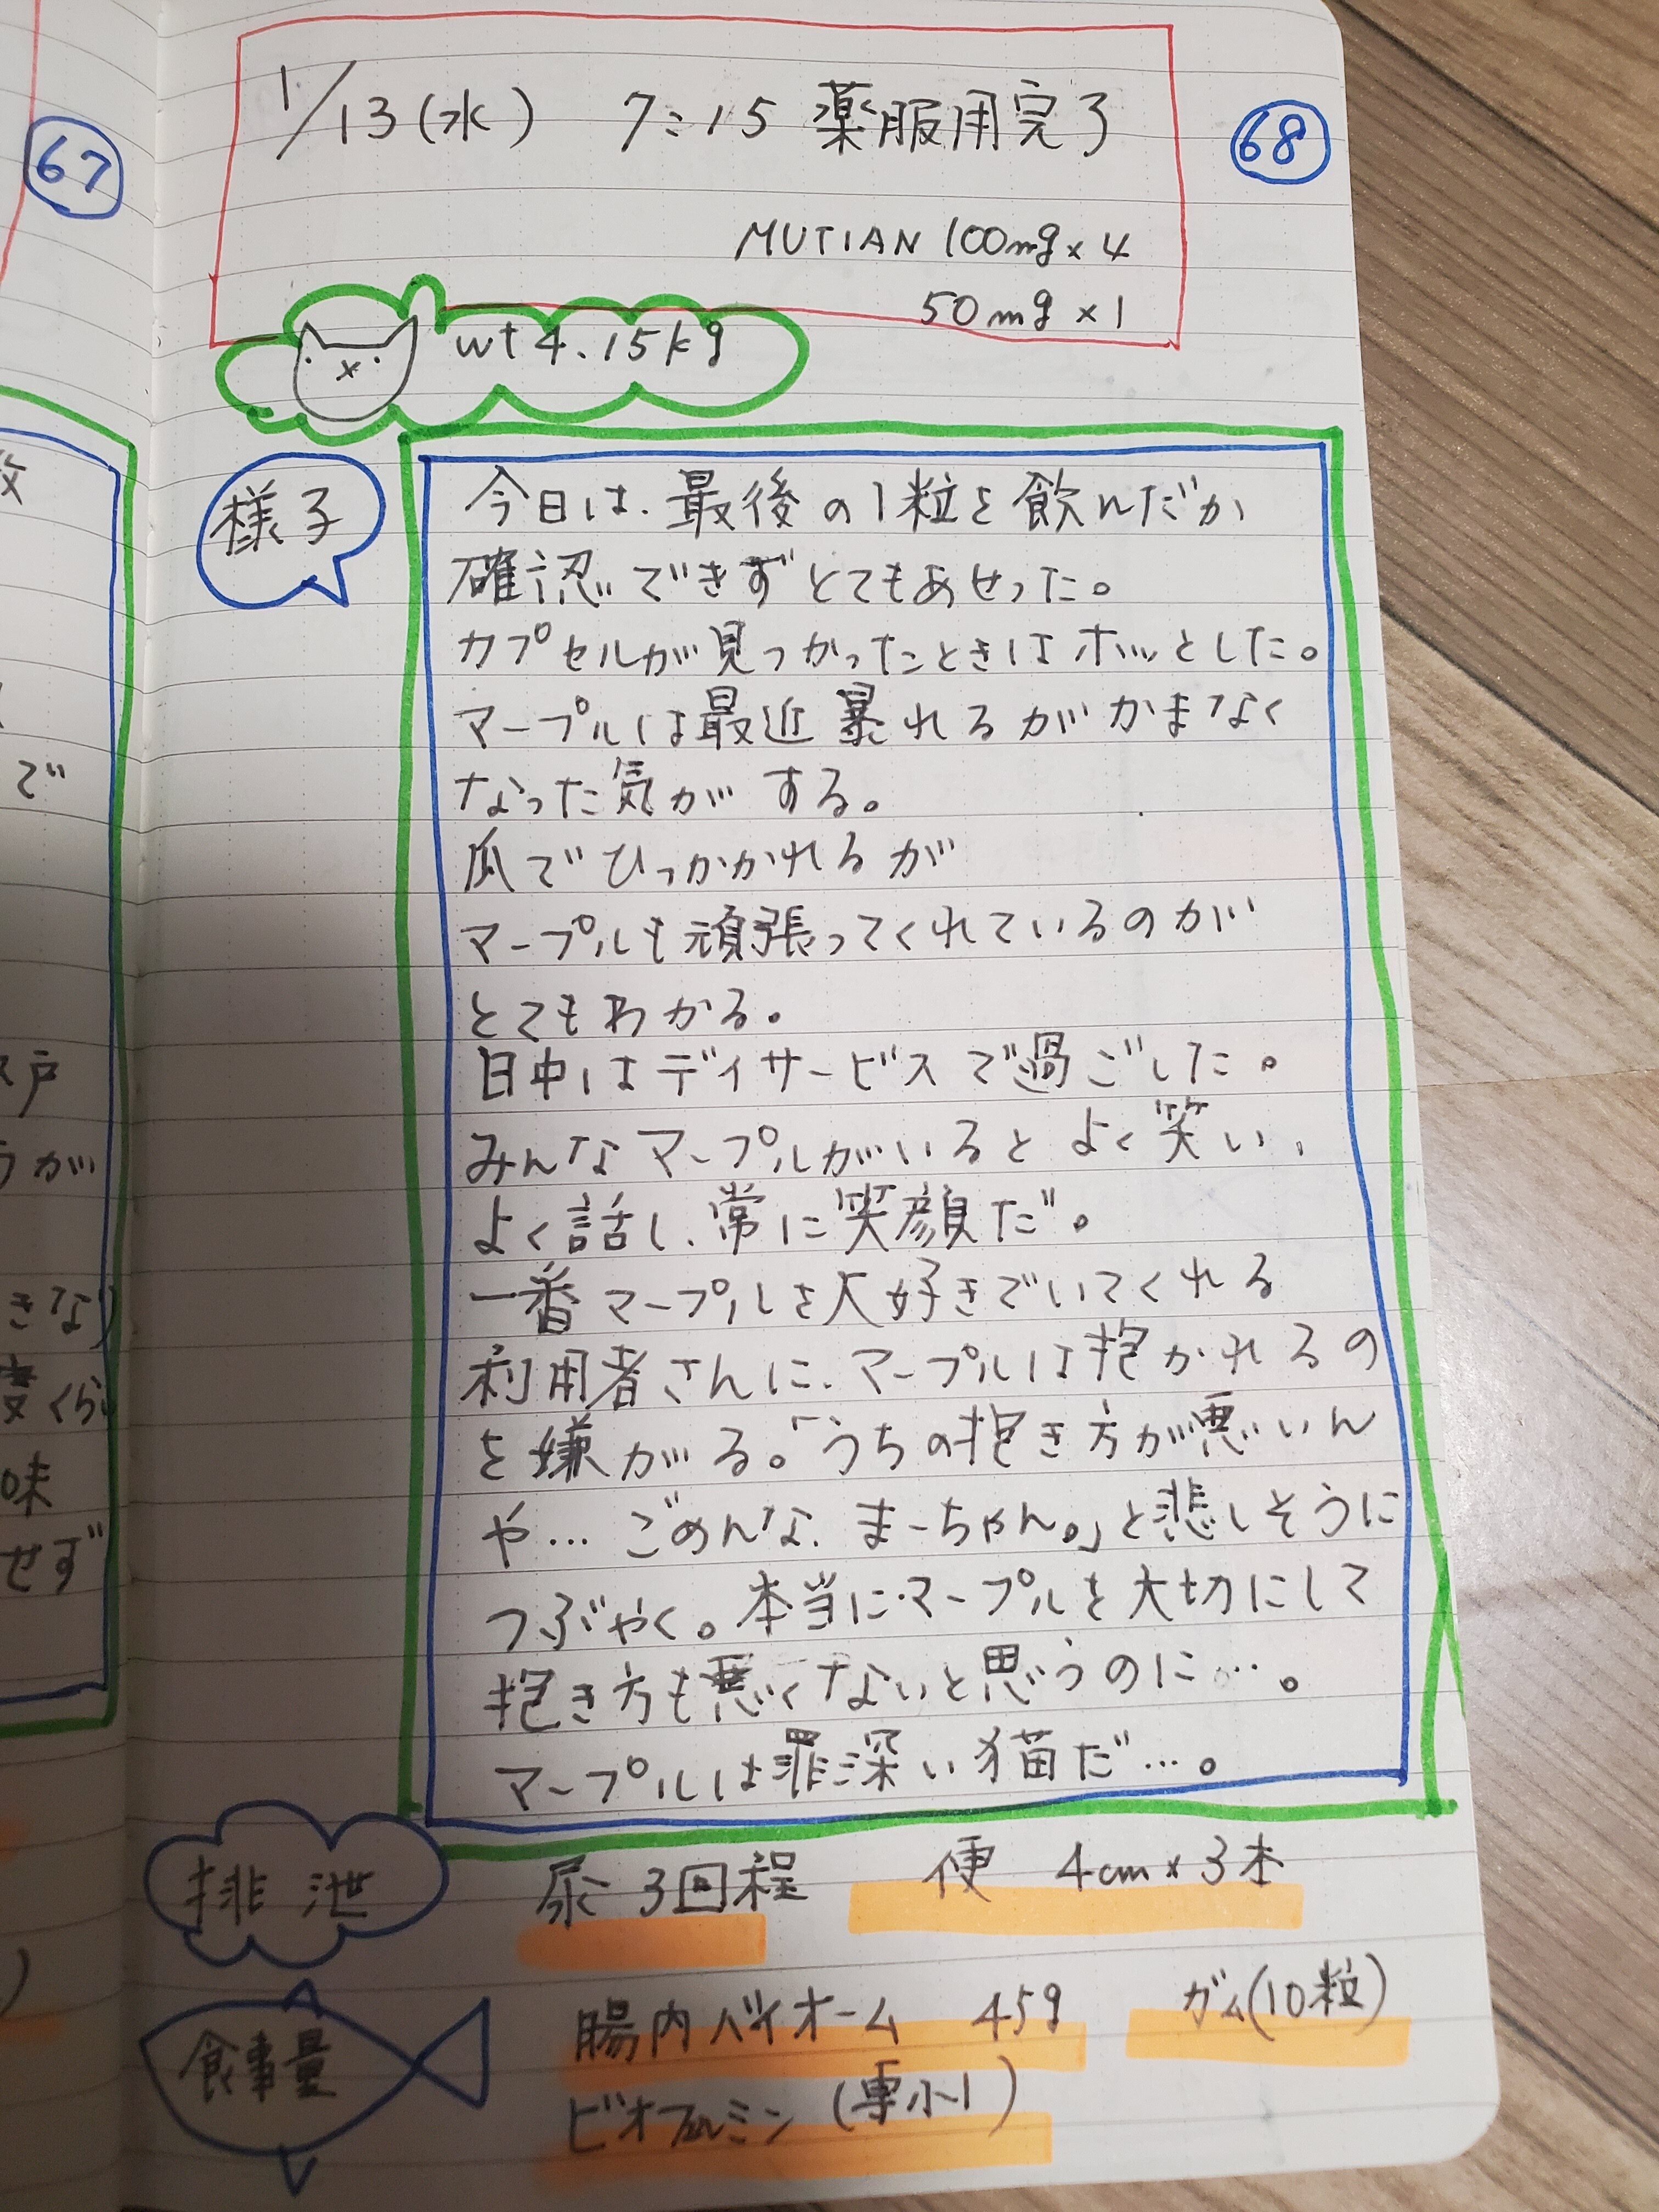 67
1/13(水) 7:15 薬服用完了
68
MUTIAN 100mg×4
50mg×1
wt 4.15kg
様子
今日は、最後の1粒を飲んだか
確認できずとてもあせった。
カプセルが見つかったときはホッとした。
マープルは最近暴れるがかまなく
なった気がする。
爪でひっかかれるが
マープルも頑張ってくれているのが
とてもわかる。
日中はデイサービスで過ごした。
みんなマープルがいるとよく笑い、
よく話し、常に笑顔だ。
一番マープルを大好きでいてくれる
利用者さんに、マープルは抱かれるの
を嫌がる。「うちの抱き方が悪いん
や…ごめんな、まーちゃん。」と悲しそうに
つぶやく。本当にマープルを大切にして
抱き方も悪くないと思うのに…。
マープルは罪深い猫だ…。
排泄 尿3回程 便 4cm×3本
食事量 腸内バイオーム 45g ガム(10粒)
ビオフェルミン(専小1)
で
戸
うが
きな)
度くらい
味
せず